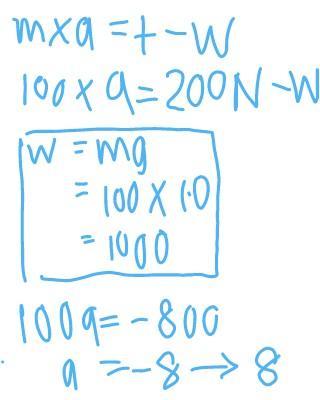 m×a = t - W
100 × a = 200N - W
W = mg
= 100 × 10
= 1000
100a = -800
a = -8 → 8